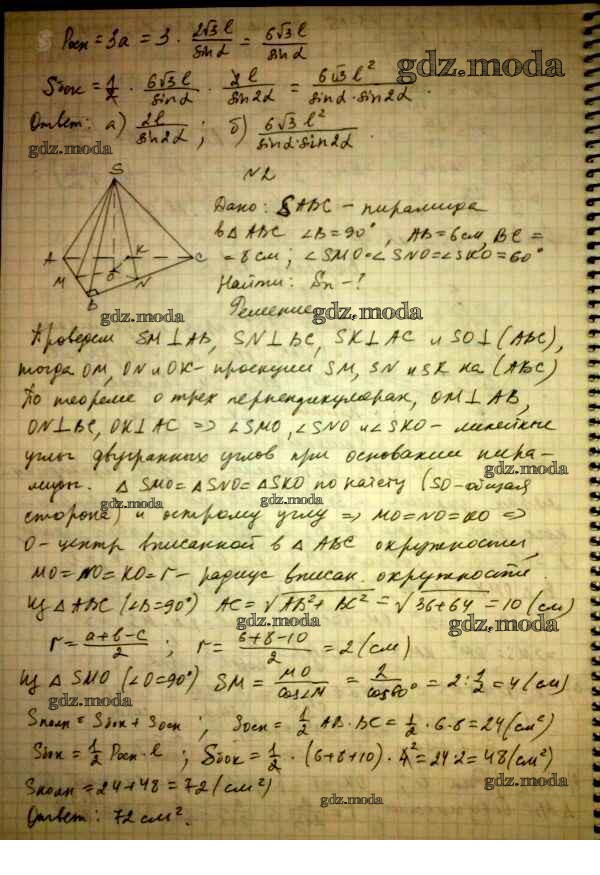 Pосн = 3a = 3 · 2√3 l / sin α = 6√3 l / sin α
gdz.moda
Sбок = 1/2 · 6√3 l / sin α · 2 l / sin 2α = 6√3 l² / sin α · sin 2α .
Ответ: а) 2l / sin 2α ; б) 6√3 l² / sin α · sin 2α .
gdz.moda
N2
S
A
M
B
O
N
K
C
Дано: SABC - пирамида
в △ ABC ∠B = 90°, AB = 6 см, BC =
= 8 см; ∠SMO = ∠SNO = ∠SKO = 60°
Найти: Sп - ?
gdz.moda
gdz.moda
Решение
Проведем SM ⊥ AB, SN ⊥ BC, SK ⊥ AC и SO ⊥ (ABC),
тогда OM, ON и OK - проекции SM, SN и SK на (ABC)
По теореме о трех перпендикулярах, OM ⊥ AB,
ON ⊥ BC, OK ⊥ AC => ∠SMO, ∠SNO и ∠SKO - линейные
углы двугранных углов при основании пира-
gdz.moda
миды. △ SMO = △ SNO = △ SKO по катету (SO - общая
gdz.moda
gdz.moda
сторона) и острому углу => MO = NO = KO =>
O - центр вписанной в △ ABC окружности,
MO = NO = KO = r - радиус вписан. окружности.
gdz.moda
Из △ ABC (∠B = 90°) AC = √AB² + BC² = √36 + 64 = 10 (см)
gdz.moda
r = a + b - c / 2 ; r = 6 + 8 - 10 / 2 = 2 (см)
Из △ SMO (∠O = 90°) SM = MO / cos ∠M = 2 / cos 60° = 2 : 1/2 = 4 (см)
gdz.moda
Sполн = Sбок + Sосн ; Sосн = 1/2 AB · BC = 1/2 · 6 · 8 = 24 (см²)
Sбок = 1/2 Pосн · l ; Sбок = 1/2 · (6 + 8 + 10) · 4² = 24 · 2 = 48 (см²)
gdz.moda
Sполн = 24 + 48 = 72 (см²)
gdz.moda
Ответ: 72 см².
gdz.moda